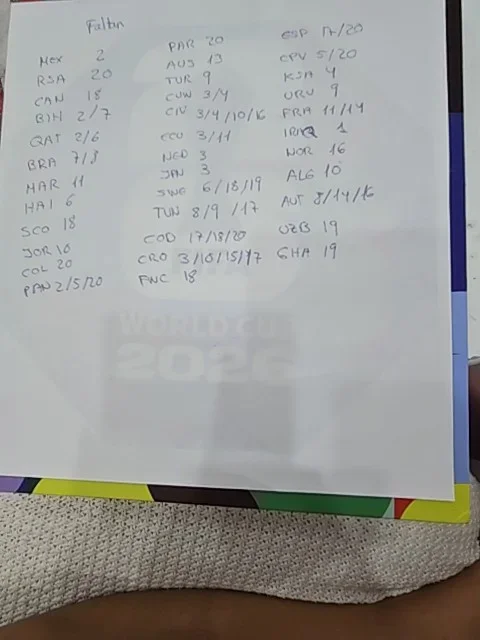 Faltan
Mex 2
RSA 20
CAN 18
BIH 2/7
QAT 2/6
BRA 7/8
MAR 11
HAI 6
SCO 18
JOR 10
COL 20
PAN 2/5/20
PAR 20
AUS 13
TUR 9
CUW 3/4
CIV 3/4/10/16
ECU 3/11
NED 3
JAN 3
SWE 6/18/19
TUN 8/9/17
COD 17/18/20
CRO 3/10/15/17
ENC 18
ESP 17/20
CPV 5/20
KSA 4
URU 9
FRA 11/14
IRQ 1
NOR 16
ALG 10
AUT 8/14/16
UZB 19
GHA 19
WORLD CUP
2026